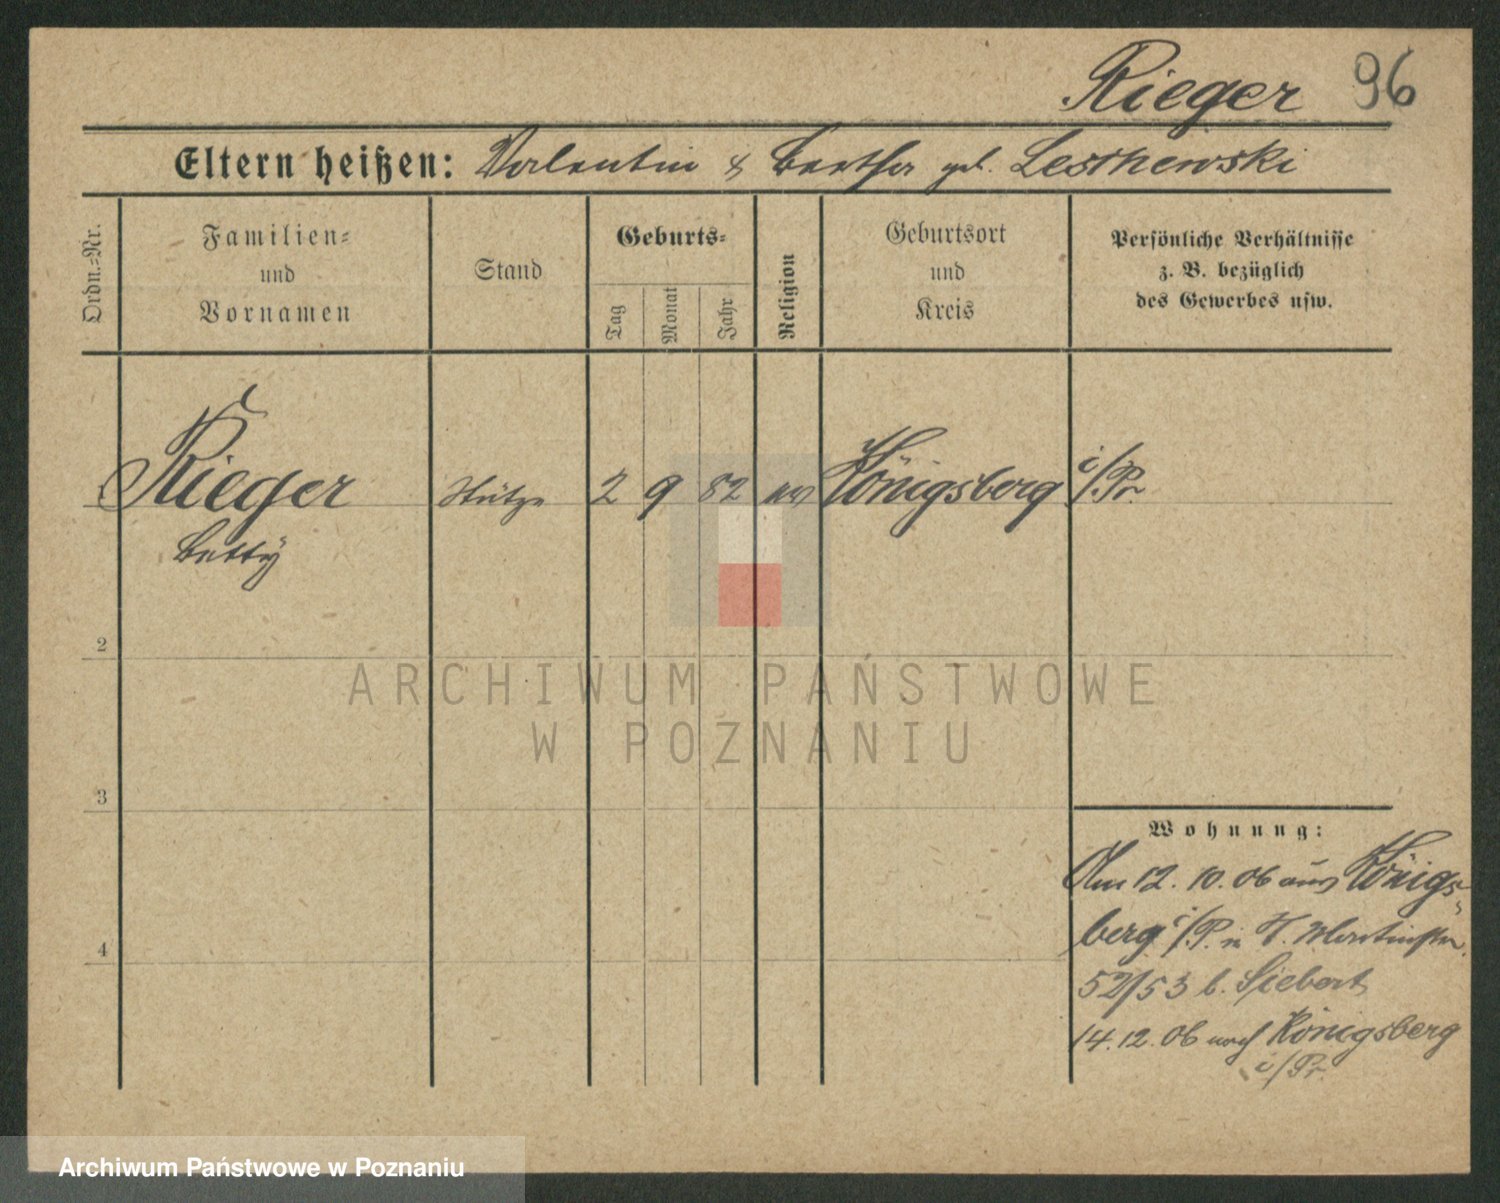 Rieger 96
Eltern heißen: Valentin & Bertha geb. Leschewski
Ordn.-Nr.
Familien-
und
Vornamen
Stand
Geburts-
Tag
Monat
Jahr
Religion
Geburtsort
und
Kreis
Persönliche Verhältnisse
z. B. bezüglich
des Gewerbes usw.
Rieger Stütze 2 9 82 ev Königsberg i/Pr.
Betty
2
3
4
Wohnung:
Am 12. 10. 06 aus Königs-
berg i/P. n. St. Martinstr.
52/53 b. Siebert
14.12.06 nach Königsberg
i/Pr.
ARCHIWUM PAŃSTWOWE
W POZNANIU
Archiwum Państwowe w Poznaniu